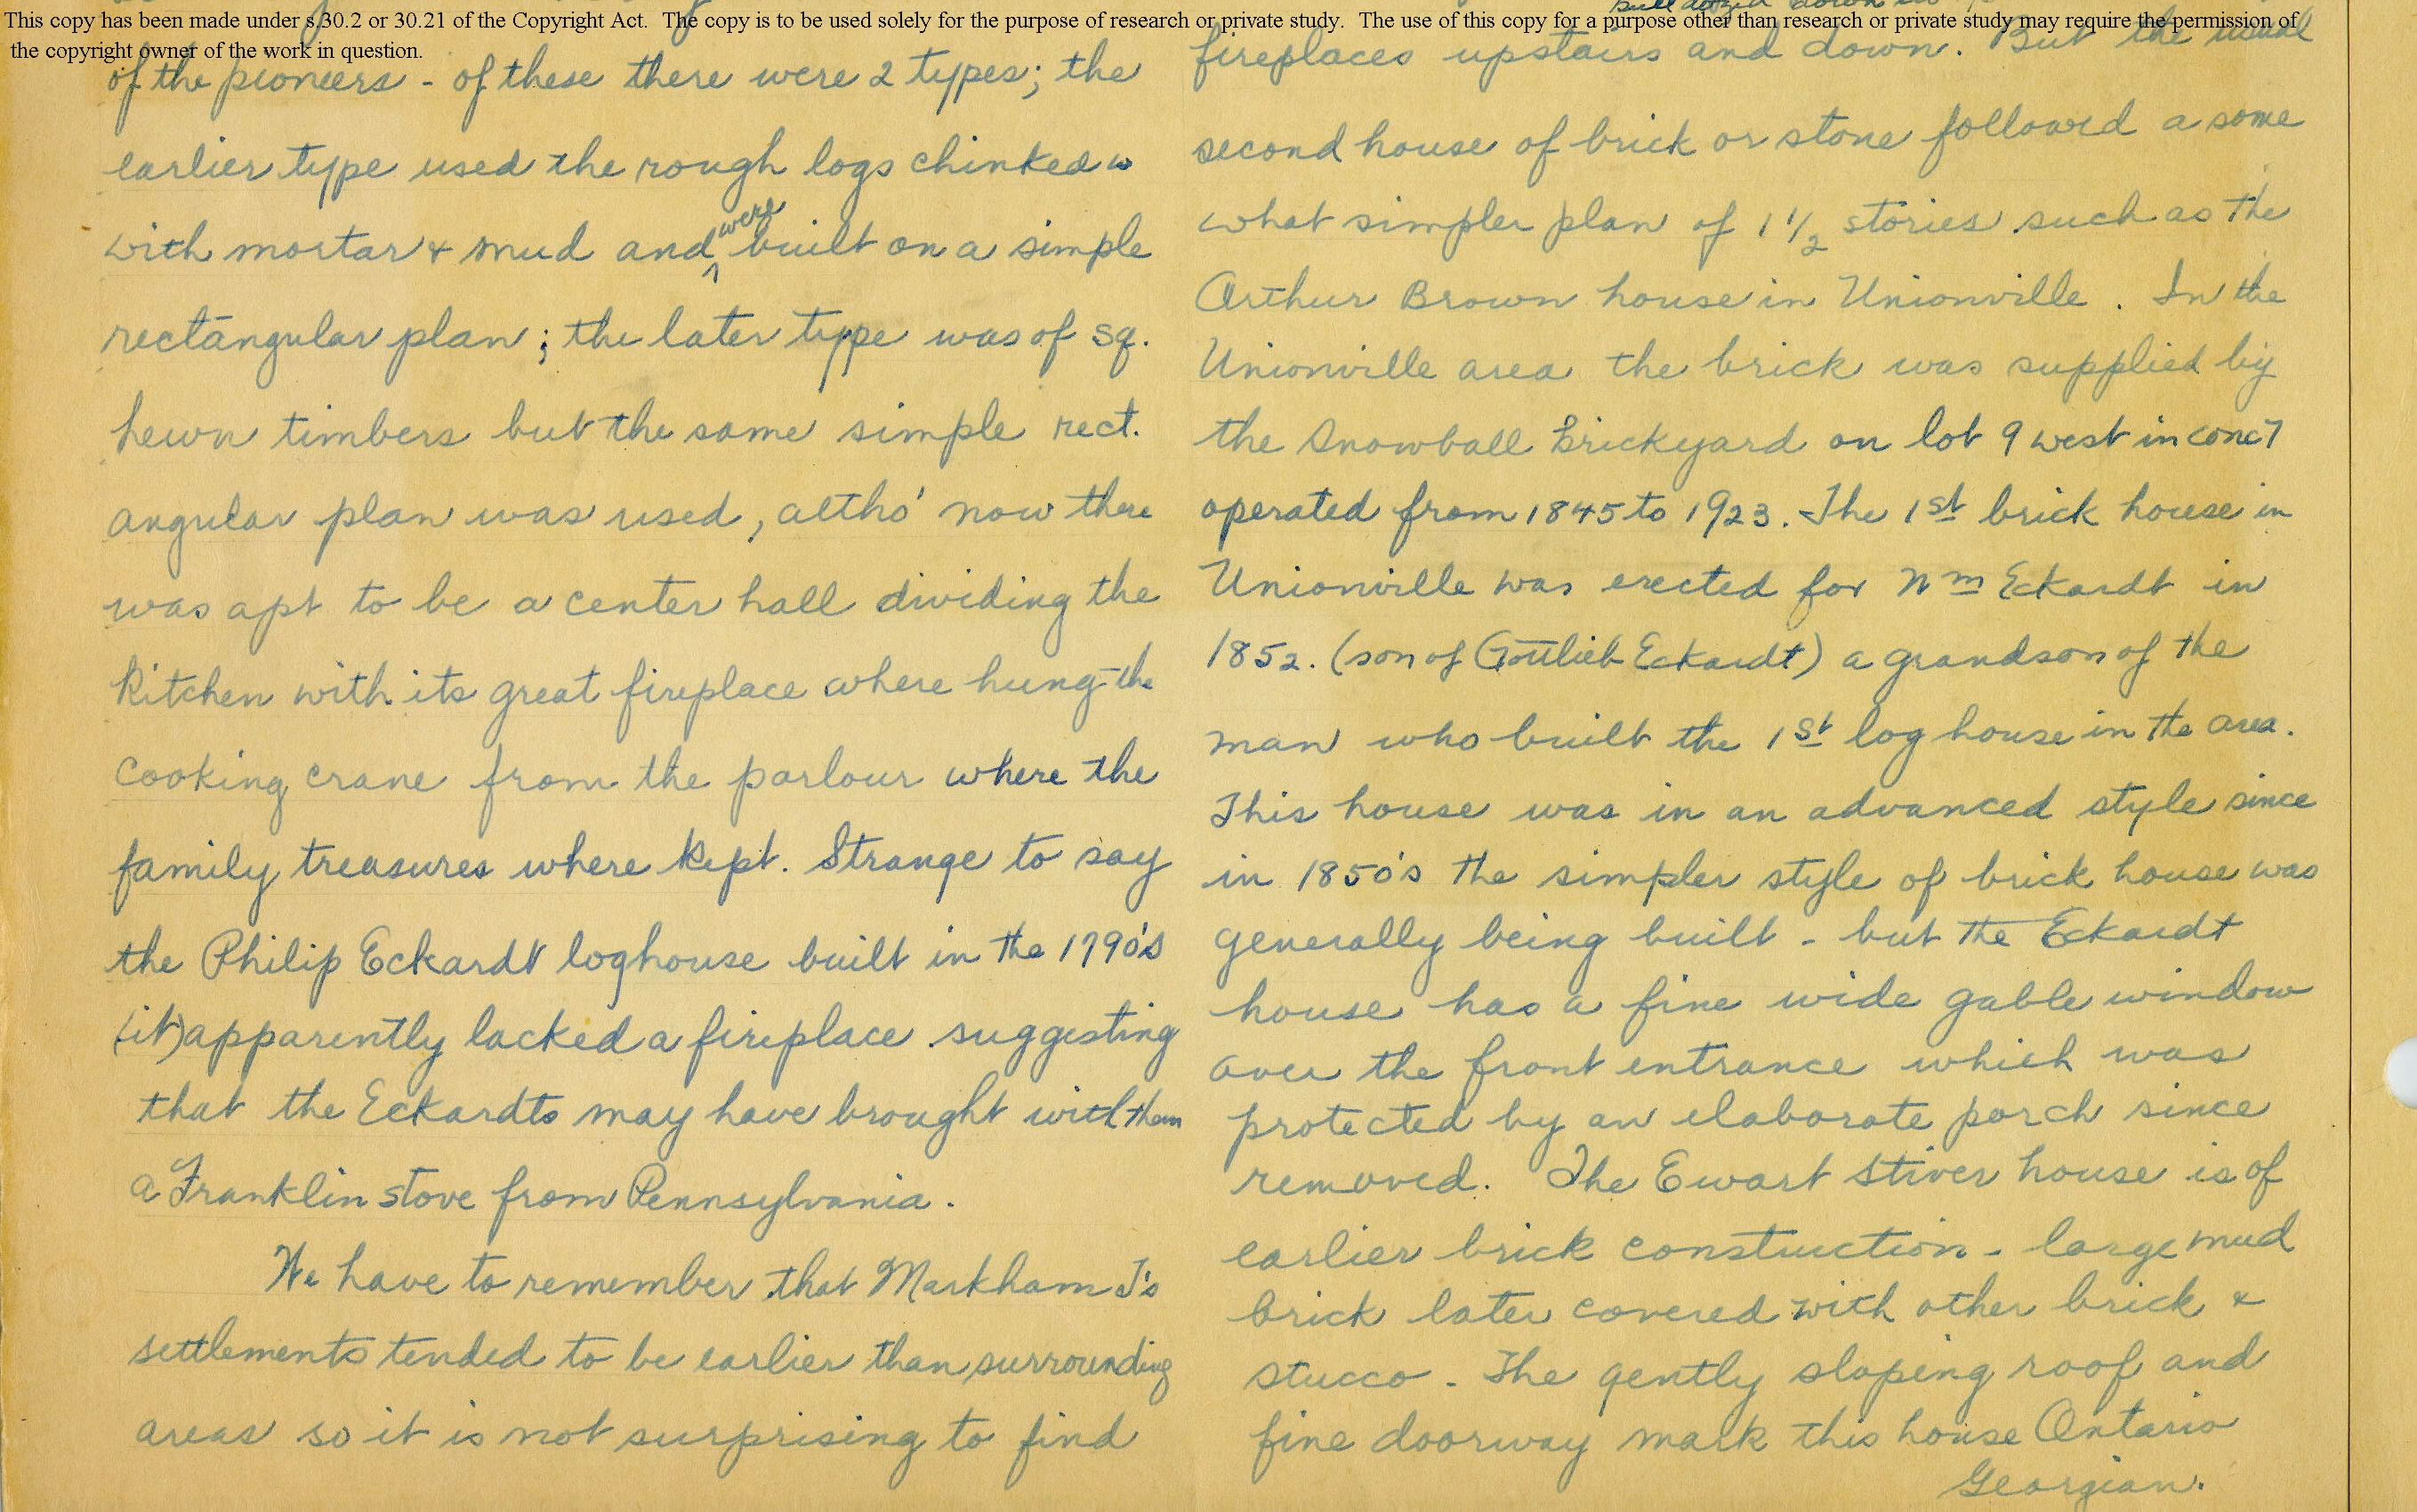 This copy has been made under s.30.2 or 30.21 of the Copyright Act. The copy is to be used solely for the purpose of research or private study. The use of this copy for a purpose other than research or private study may require the permission of
the copyright owner of the work in question.
of the pioneers - of these there were 2 types; the
earlier type used the rough logs chinked w
with mortar & mud and were built on a simple
rectangular plan; the later type was of sq.
hewn timbers but the same simple rect.
angular plan was used, altho' now there
was apt to be a center hall dividing the
kitchen with its great fireplace where hung the
cooking crane from the parlour where the
family treasures where kept. Strange to say
the Philip Eckardt loghouse built in the 1790's
(it) apparently lacked a fireplace suggesting
that the Eckardts may have brought with them
a Franklin stove from Pennsylvania.
We have to remember that Markham T's
settlements tended to be earlier than surrounding
areas so it is not surprising to find
fireplaces upstairs and down. But the usual
second house of brick or stone followed a some
what simpler plan of 1 1/2 stories such as the
Arthur Brown house in Unionville. In the
Unionville area the brick was supplied by
the Snowball Brickyard on lot 9 west in conc 7
operated from 1845 to 1923. The 1st brick house in
Unionville was erected for Wm Eckardt in
1852. (son of Gottlieb Eckardt) a grandson of the
man who built the 1st log house in the area.
This house was in an advanced style since
in 1850's the simpler style of brick house was
generally being built - but the Eckardt
house has a fine wide gable window
over the front entrance which was
protected by an elaborate porch since
removed. The Ewart Stiver house is of
earlier brick construction - large mud
brick later covered with other brick &
stucco - The gently sloping roof and
fine doorway mark this house Ontario
Georgian.